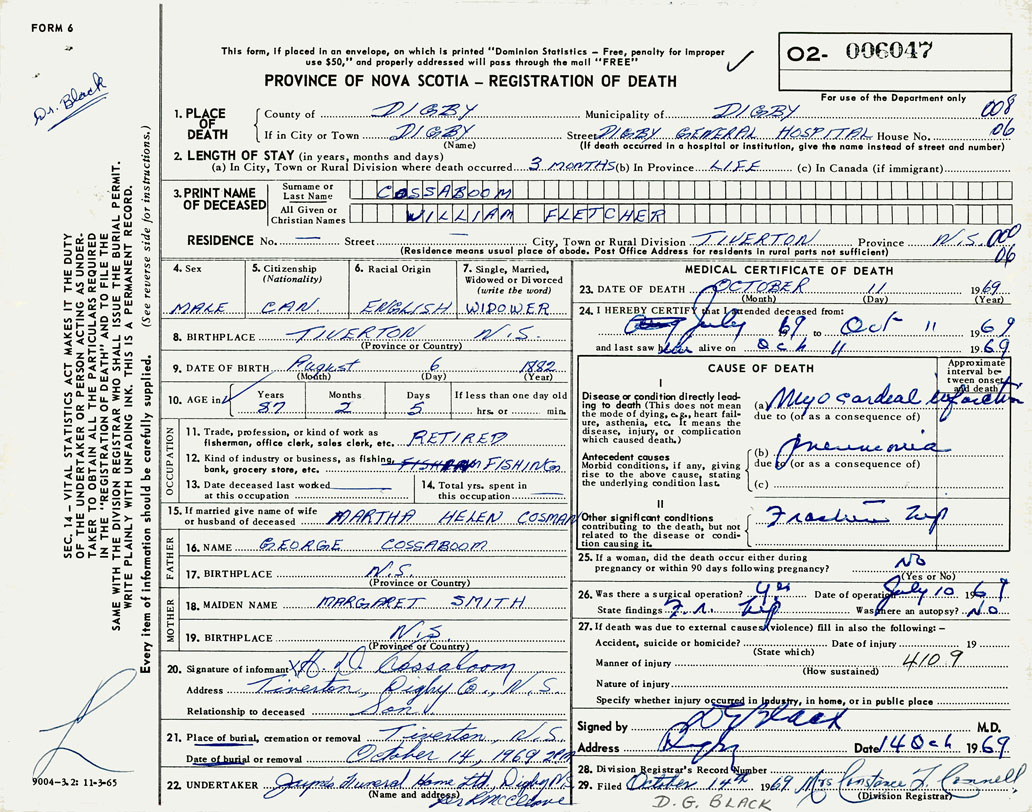 FORM 6
Dr. Black
This form, if placed in an envelope, on which is printed "Dominion Statistics – Free, penalty for improper
use $50," and properly addressed will pass through the mail "FREE"
PROVINCE OF NOVA SCOTIA – REGISTRATION OF DEATH
O2- 006047
For use of the Department only
008
06
1. PLACE OF DEATH
County of DIGBY Municipality of DIGBY
If in City or Town DIGBY Street DIGBY GENERAL HOSPITAL House No.
(Name) (If death occurred in a hospital or institution, give the name instead of street and number)
2. LENGTH OF STAY (in years, months and days)
(a) In City, Town or Rural Division where death occurred 3 MONTHS (b) In Province LIFE (c) In Canada (if immigrant)
3. PRINT NAME OF DECEASED
Surname or Last Name COSSABOOM
All Given or Christian Names WILLIAM FLETCHER
RESIDENCE No. — Street — City, Town or Rural Division TIVERTON Province N.S. 000
(Residence means usual place of abode. Post Office Address for residents in rural parts not sufficient) 06
4. Sex MALE
5. Citizenship (Nationality) CAN.
6. Racial Origin ENGLISH
7. Single, Married, Widowed or Divorced (write the word) WIDOWER
8. BIRTHPLACE TIVERTON N.S.
(Province or Country)
9. DATE OF BIRTH August 6 1882
(Month) (Day) (Year)
10. AGE in Years 87 Months 2 Days 5 If less than one day old hrs. or min.
OCCUPATION
11. Trade, profession, or kind of work as fisherman, office clerk, sales clerk, etc. RETIRED
12. Kind of industry or business, as fishing, bank, grocery store, etc. FISHING
13. Date deceased last worked at this occupation
14. Total yrs. spent in this occupation
15. If married give name of wife or husband of deceased MARTHA HELEN COSMAN
FATHER
16. NAME GEORGE COSSABOOM
17. BIRTHPLACE N.S.
(Province or Country)
MOTHER
18. MAIDEN NAME MARGARET SMITH
19. BIRTHPLACE N.S.
(Province or Country)
20. Signature of informant Cossaboom
Address Tiverton, Digby Co., N.S.
Relationship to deceased Son
21. Place of burial, cremation or removal Tiverton, N.S.
Date of burial or removal October 14, 1969 2PM
22. UNDERTAKER Funeral Home Ltd, Digby N.S.
(Name and address)
MEDICAL CERTIFICATE OF DEATH
23. DATE OF DEATH OCTOBER 11 1969
(Month) (Day) (Year)
24. I HEREBY CERTIFY that I attended deceased from:
July 69 to Oct 11 1969
and last saw him alive on Oct 11 1969
CAUSE OF DEATH
Approximate interval between onset and death
I
Disease or condition directly leading to death (This does not mean the mode of dying, e.g., heart failure, asthenia, etc. It means the disease, injury, or complication which caused death.)
(a) Myocardeal infarction
due to (or as a consequence of)
Antecedent causes
Morbid conditions, if any, giving rise to the above cause, stating the underlying condition last.
(b) Pneumonia
due to (or as a consequence of)
(c)
II
Other significant conditions contributing to the death, but not related to the disease or condition causing it. Fracture hip
25. If a woman, did the death occur either during pregnancy or within 90 days following pregnancy? No
(Yes or No)
26. Was there a surgical operation? Yes Date of operation July 10 1969
State findings Fr. hip Was there an autopsy? No
27. If death was due to external causes (violence) fill in also the following: –
Accident, suicide or homicide? Date of injury 19
(State which)
Manner of injury 4109
(How sustained)
Nature of injury
Specify whether injury occurred in Industry, in home, or in public place
Signed by Black M.D.
Address Digby Date 14 Oct 1969
28. Division Registrar's Record Number
29. Filed October 14th 1969 Mrs Constance L Connell
(Division Registrar)
D. G. BLACK
SEC. 14 – VITAL STATISTICS ACT MAKES IT THE DUTY
OF THE UNDERTAKER OR PERSON ACTING AS UNDER-
TAKER TO OBTAIN ALL THE PARTICULARS REQUIRED
IN THE "REGISTRATION OF DEATH" AND TO FILE THE
SAME WITH THE DIVISION REGISTRAR WHO SHALL ISSUE THE BURIAL PERMIT.
WRITE PLAINLY WITH UNFADING INK. THIS IS A PERMANENT RECORD.
Every item of information should be carefully supplied. (See reverse side for instructions.)
9004-3.2: 11-3-65